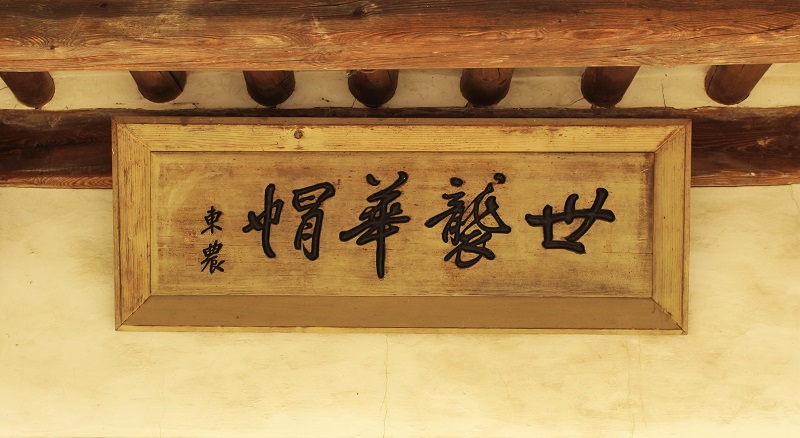 世襲華帽
東農